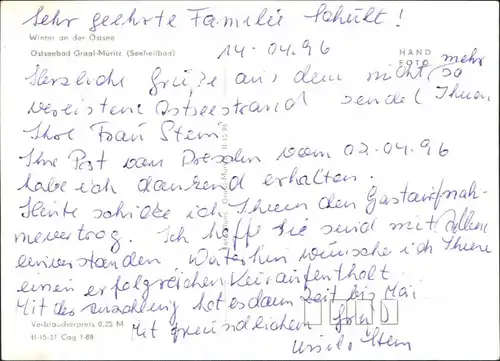 Sehr geehrte Familie Schult!
Winter an der Ostsee
Ostseebad Graal-Müritz (Seeheilbad)
14.04.96
HAND
FOTO
Herzliche Grüße aus dem nicht mehr so
vereisten Ostseestrand sendet Ihnen
Ihre Frau Stern
Ihre Post vom Dresden vom 02.04.96
habe ich dankend erhalten.
Heute schicke ich Ihnen den Gastaufnah-
mevertrag. Ich hoffe Sie sind mit allem
einverstanden. Weiterhin wünsche ich Ihnen
einen erfolgreichen Kuraufenthalt
Mit der Anzahlung hat es dann Zeit bis Mai
Verbraucherpreis 0,25 M
Mit freundlichem Gruß
II-15-37 Cag 1-88
Ursula Stern